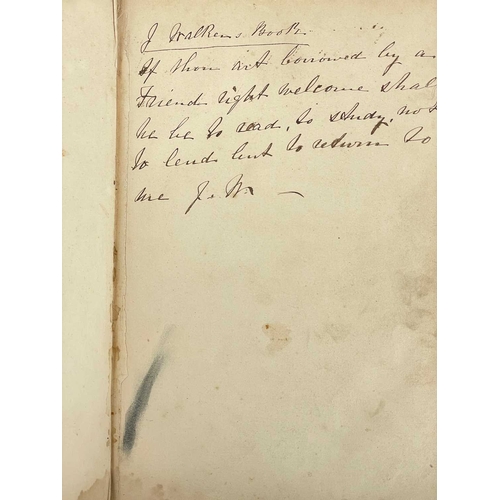 J Walkers Book
If thou art borrowed by a
Friend right welcome shall
he be to read, to study, not
to lend but to return to
me J. W. —